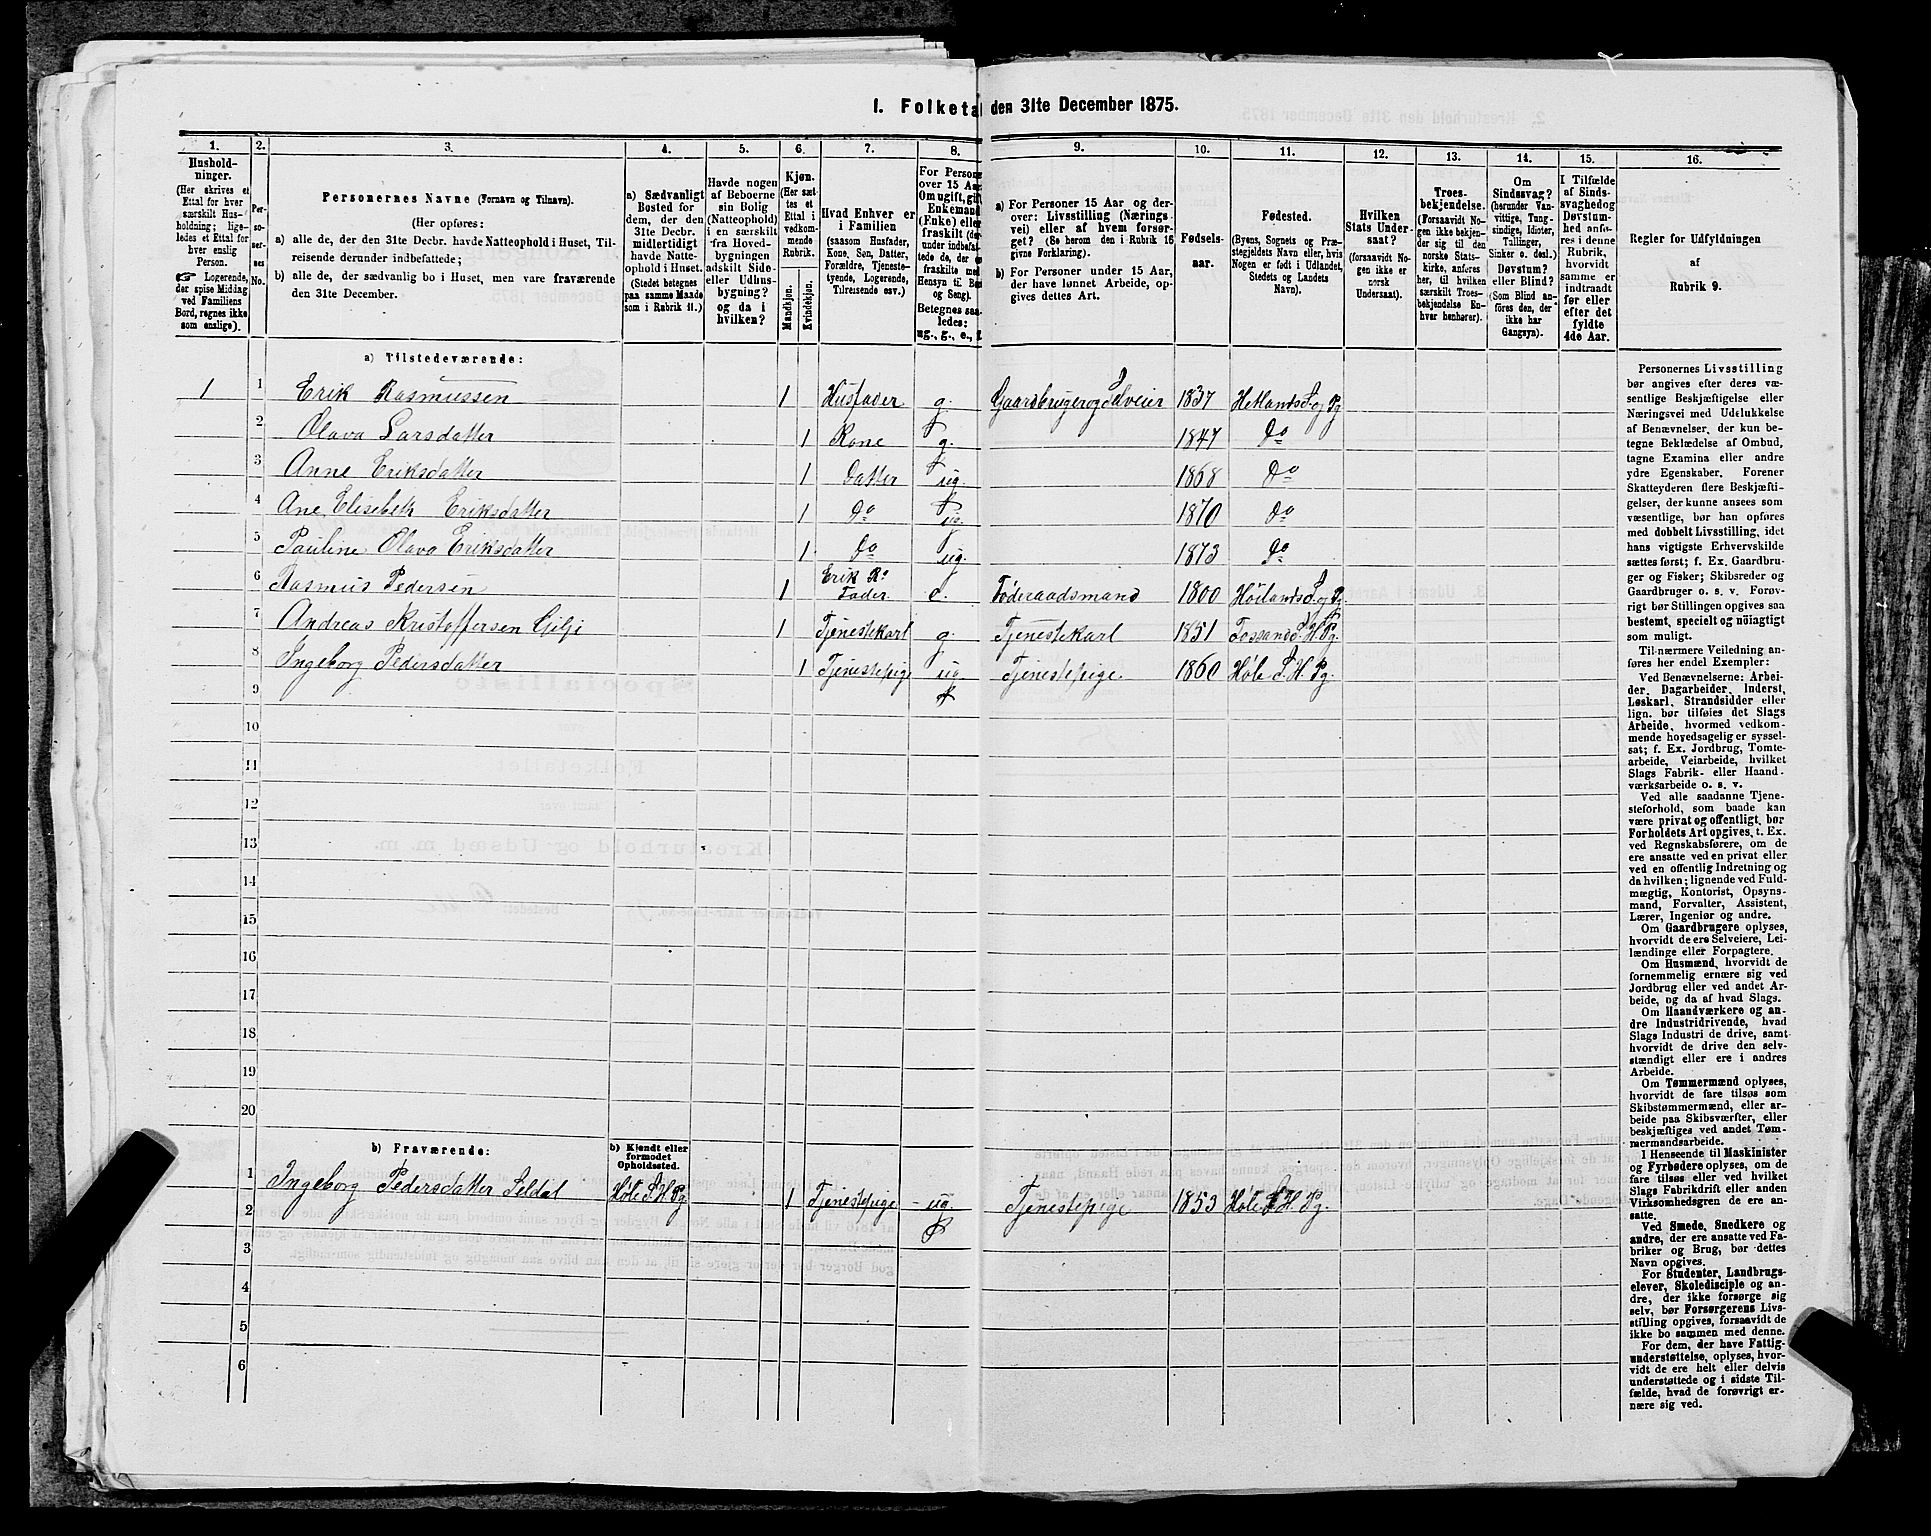 1. Folketal den 31te December 1875.
1. 2. 3. 4. 5. 6. 7. 8. 9. 10. 11. 12. 13. 14. 15. 16.
Hushold-
ninger.
(Her skrives et
Ettal for hver
særskilt Hus-
holdning; lige-
ledes et Ettal for
enslig
Person.
☞ Logerende,
der spise Middag
ved Familiens
Bord, regnes ikke
som enslige).
Per-
so-
ner-
nes
No.
Personernes Navne (Fornavn og Tilnavn).
(Her opføres:
a) alle de, der den 31te Decbr. havde Natteophold i Huset, Til-
reisende derunder indbefattede;
b) alle de, der sædvanlig bo i Huset, men vare fraværende
den 31te December.
a) Sædvanligt
Bosted for
dem, der den
31te Decbr.
midlertidigt
havde Natte-
ophold i Huset.
(Stedet betegnes
paa samme Maade
som i Rubrik 11.)
Havde nogen
af Beboerne
sin Bolig
(Natteophold)
i en særskilt
fra Hoved-
bygningen
adskilt Side-
eller Udhus-
bygning?
og da i
hvilken?
Kjøn.
(Her sæt-
tes et
Ettal i
vedkom-
mende
Rubrik.
Mandkjøn.
Kvindekjøn.
Hvad Enhver er
i Familien
(saasom Husfader,
Kone, Søn, Datter,
Forældre, Tjeneste-
tyende, Logerende,
Tilreisende osv.)
For Person
over 15 Aar
Om ugift, gift
Enkemand
(Enke) eller
fraskilt (der-
under indbefat-
tede de, der er
fraskilte med
Hensyn til Bord
og Seng).
Betegnes saa-
ledes:
ug., g., e., f.
a) For Personer 15 Aar og der-
over: Livsstilling (Nærings-
vei) eller af hvem forsør-
get? (Se herom den i Rubrik 16
givne Forklaring).
b) For Personer under 15 Aar,
der have lønnet Arbeide, op-
gives dettes Art.
Fødsels-
aar.
Fødested.
(Byens, Sognets og Præ-
stegjeldets Navn eller, hvis
Nogen er født i Udlandet,
Stedets og Landets
Navn).
Hvilken
Stats Under-
saat?
(forsaavidt No-
gen ikke er
norsk
Undersaat).
Troes-
bekjendelse.
(Forsaavidt No-
gen ikke bekjen-
der sig til den
norske Stats-
kirke, anføres
her, til hvilken
særskilt Troes-
bekjendelse En-
hver henhører).
Om
Sindssvag?
(herunder Van-
vittige, Tung-
sindige, Idioter,
Tallinger,
Sinker o. desl.)
Døvstum?
eller Blind?
(Som Blind an-
føres den, der
ikke har
Gangsyn).
I Tilfælde
af Sinds-
svaghed og
Døvstum-
hed anfø-
res i denne
Rubrik,
hvorvidt
samme er
indtraadt
før eller
efter det
fyldte
4de Aar.
Regler for Udfyldningen
af
Rubrik 9.
a) Tilstedeværende:
1 1 Erik Rasmussen 1 Husfader g. Gaardbruger og Selveier 1837 Hetlands S. og Pg
2 Olava Larsdatter 1 Kone g. 1847 Do
3 Anne Eriksdatter 1 Datter ug. 1868 Do
4 Ane Elisebeth Eriksdatter 1 Do ug. 1870 Do
5 Pauline Olava Eriksdatter 1 Do ug. 1873 Do
6 Rasmus Pedersen 1 Erik Rs Fader e. Føderaadsmand 1800 Høilands S. og Pg.
7 Andreas Kristoffersen Gilje 1 Tjenestekarl g. Tjenestekarl 1851 Fossand S. H. Pg.
8 Ingeborg Pedersdatter 1 Tjenestepige ug Tjenestepige 1860 Høle S. H. Pg.
9
10
11
12
13
14
15
16
17
18
19
20
b) Fraværende:
b) Kjendt eller
formodet
Opholdssted.
1 Ingeborg Pedersdatter Seldal Høle S. H. Pg 1 Tjenestepige ug. Tjenestepige 1853 Høle S. H. Pg.
2
3
4
5
6
Personernes Livsstilling
bør angives efter deres væ-
sentlige Beskjæftigelse eller
Næringsvei med Udelukkelse
af Benævnelser, der kun be-
tegne Beklædelse af Ombud,
tagne Examina eller andre
ydre Egenskaber. Forener
Skatteyderen flere Beskjæfti-
gelser, der kunne ansees som
væsentlige, bør han opføres
med dobbelt Livsstilling, idet
hans vigtigste Erhvervskilde
sættes først; f. Ex. Gaardbru-
ger og Fisker; Skibsreder og
Gaardbruger o. s. v. Forøv-
rigt bør Stillingen opgives saa
bestemt, specielt og nöiagtig
som muligt.
Til nærmere Veiledning an-
føres her endel Exempler:
Ved Benævnelserne: Arbei-
der, Dagarbeider, Inderst,
Løskarl, Strandsidder eller
lign. bør tilføies det Slags
Arbeide, hvormed vedkom-
mende hovedsagelig er syssel-
sat; f. Ex. Jordbrug, Tomte-
arbeide, Veiarbeide, hvilket
Slags Fabrik- eller Haand-
værksarbeide o. s. v.
Ved alle saadanne Tjene-
steforhold, som baade kan
være privat og offentligt, bør
Forholdets Art opgives, t. Ex.
ved Regnskabsførere, om de
ere ansatte ved en privat eller
ved en offentlig Indretning og
da hvilken; lignende ved Fuld-
mægtig, Kontorist, Opsyns-
mand, Forvalter, Assistent,
Lærer, Ingeniør og andre.
Om Gaardbrugere oplyses,
hvorvidt de ere Selveiere, Lei-
lændinge eller Forpagtere.
Om Husmænd, hvorvidt de
fornemmelig ernære sig ved
Jordbrug eller ved andet Ar-
beide, og da af hvad Slags.
Om Haandværkere og an-
dre Industridrivende, hvad
Slags Industri de drive, samt
hvorvidt de drive den selv-
stændigt eller ere i andres
Arbeide.
Om Tømmermænd oplyses,
hvorvidt de fare tilsøs som
Skibstømmermænd, eller ar-
beide paa Skibsværfter, eller
beskjæftiges ved andet Tøm-
mermandsarbeide.
I Henseende til Maskinister
og Fyrbødere oplyses, om de
fare tilsøs eller ved hvilket
Slags Fabrikdrift eller anden
Virksomhedsgren de ere an-
satte.
Ved Smede, Snedkere og
andre, der ere ansatte ved Fa-
briker og Brug, bør dettes
Navn opgives.
For Studenter, Landbrugs-
elever, Skoledisciple og an-
dre, der ikke forsørge sig
selv, bør Forsørgerens Livs-
stilling opgives, forsaavidt de
ikke bo sammen med denne.
For dem, der have Fattig-
understøttelse, oplyses, hvor-
vidt de ere helt eller delvis
understøttede og i sidste Til-
fælde, hvad de forøvrigt er-
nære sig ved.